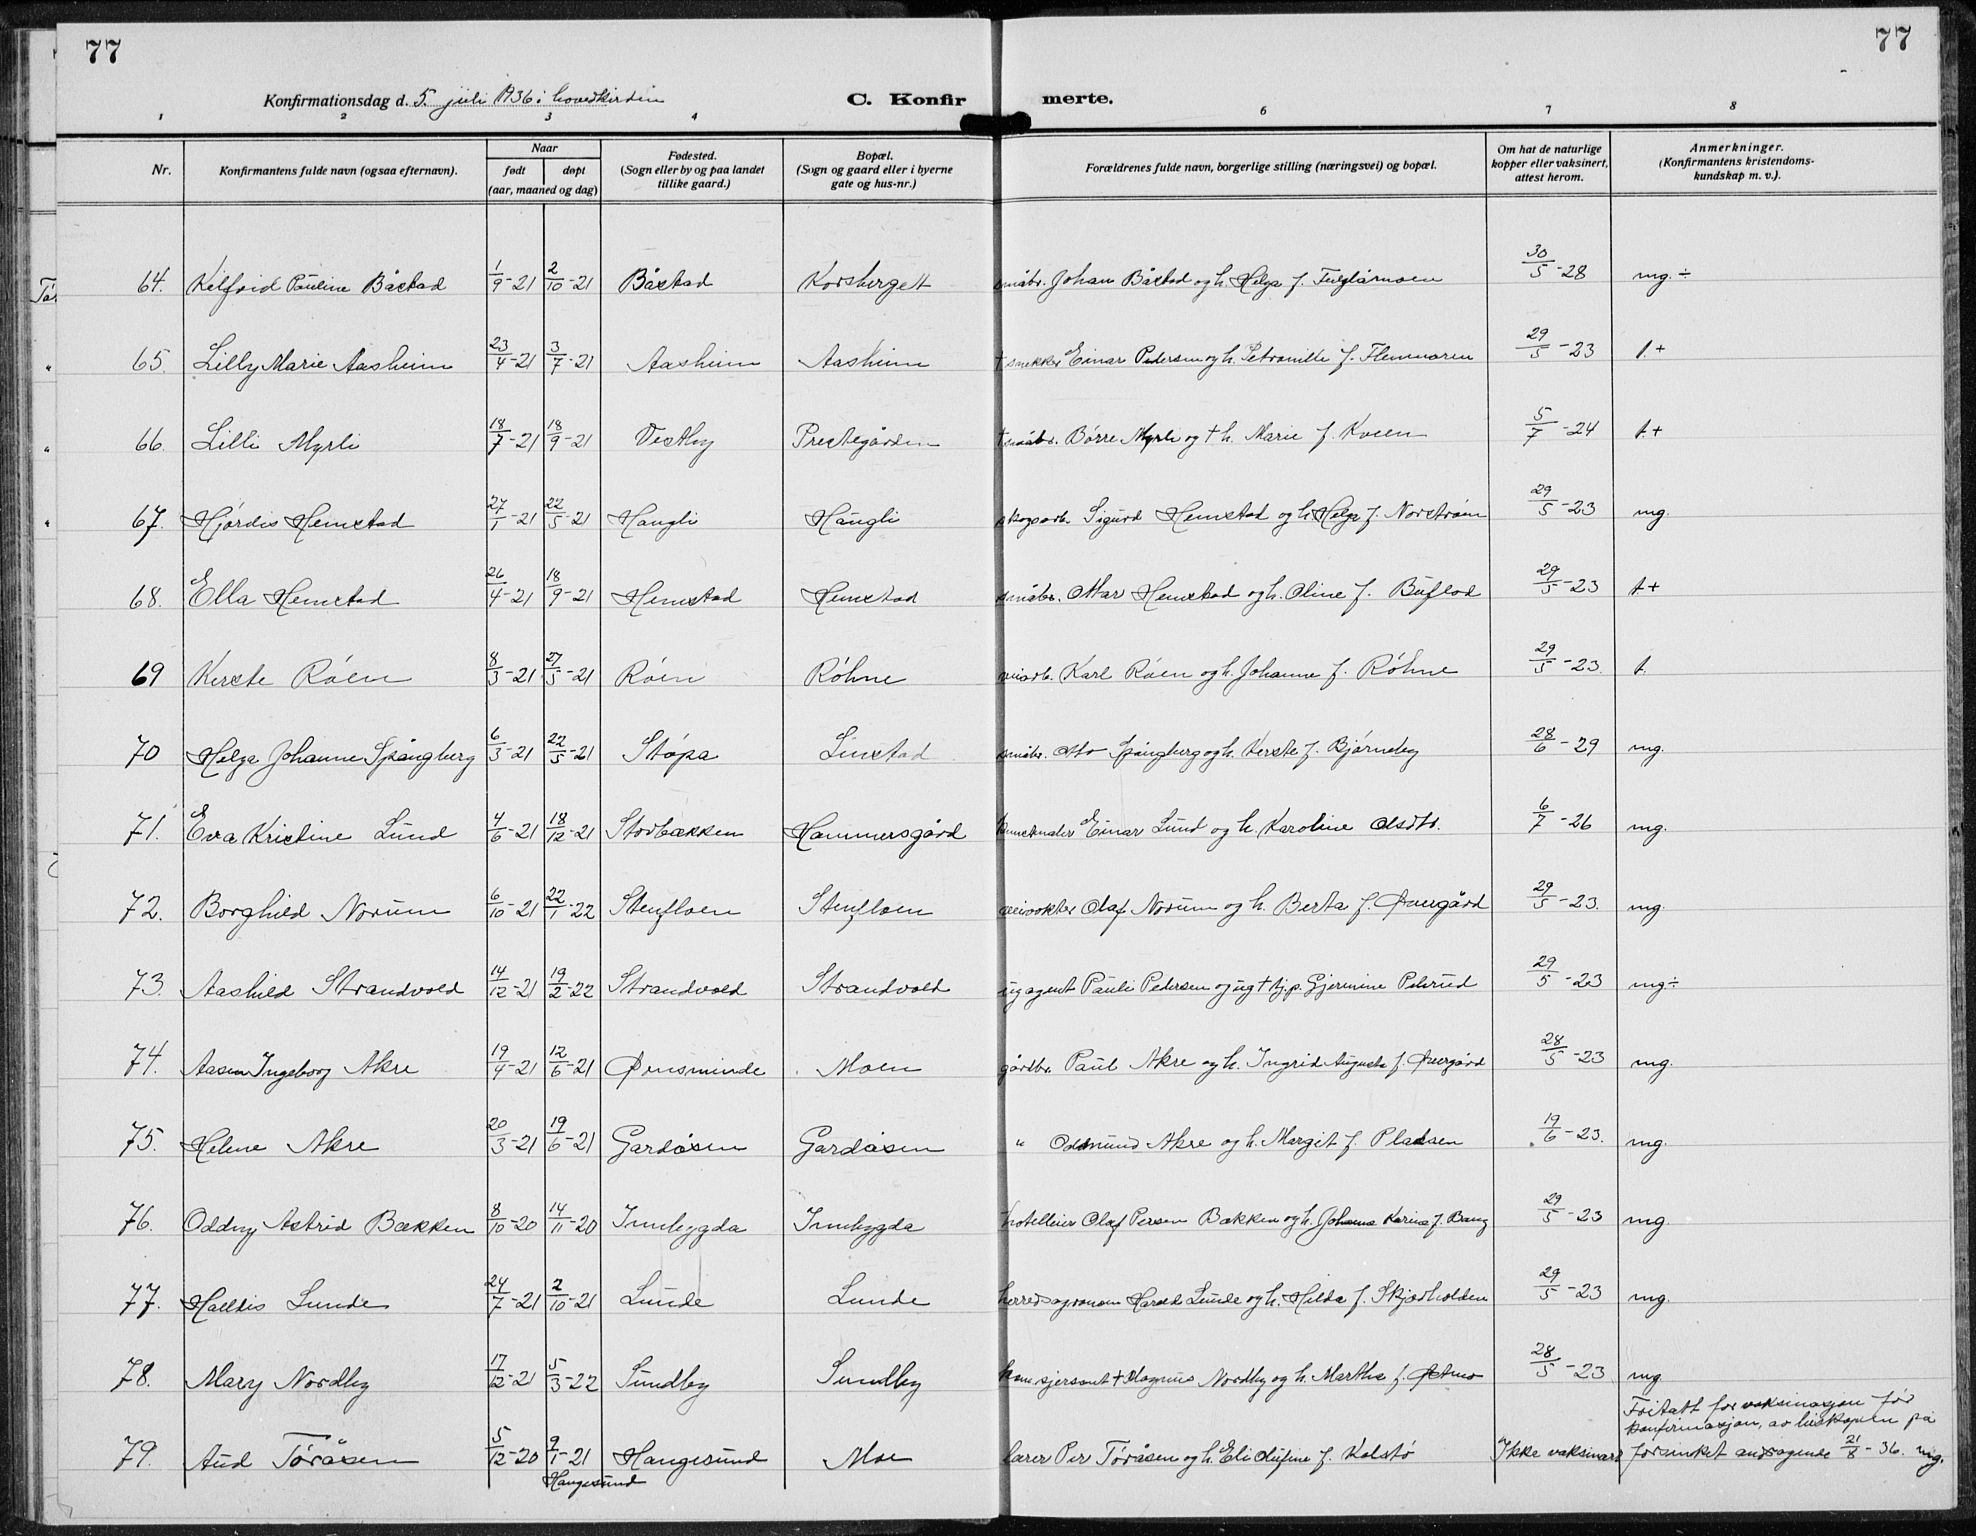 77
77
Konfirmationsdag d. 5. juli 1936 i hovedkirken
C. Konfir merte.
1 2 3 4 6 7 8
Nr.
Konfirmantens fulde navn (ogsaa efternavn).
Naar
født døpt
(aar, maaned og dag)
Fødested.
(Sogn eller by og paa landet
tillike gaard.)
Bopæl.
(Sogn og gaard eller i byerne
gate og hus-nr.)
Forældrenes fulde navn, borgerlige stilling (næringsvei) og bopæl.
Om hat de naturlige
kopper eller vaksinert,
attest herom.
Anmerkninger.
(Konfirmantens kristendoms-
kundskap m. v.).
64. Kelfrid Pauline Båstad 1/9-21 2/10-21 Båstad Korsberget småbr. Johan Båstad og h. Helga f. 30/5-28 mg.÷
65. Lilly Marie Aasheim 23/4-21 3/7-21 Aasheim Aasheim † snekker Einar Pedersen og h. Petronille f. Flermoen 29/5-23 t.+
66. Lilli Myrli 18/7-21 18/9-21 Vestby Prestegården † småbr. Børre Myrli og † h. Marie f. Kveen 5/7-24 t.+
67. Hjørdis Hemstad 27/1-21 22/5-21 Haugli Haugli skogsarb. Sigurd Hemstad og h. Helga f. Norstrøm 29/5-23 mg.
68. Ella Hemstad 26/4-21 18/9-21 Hemstad Hemstad småbr. Ottar Hemstad og h. Oline f. Buflod 29/5-23 t+
69 Kerste Røen 8/3-21 27/5-21 Røen Røhne veiarb. Karl Røen og h. Johanne f. Røhne 29/5-23. t.
70 Helga Johanne Spångberg 6/3-21 22/5-21 Støpa Linstad småbr. Otto Spångberg og h. Kerste f. Bjørneby 28/6-29 mg.
71. Eva Kristine Lund 4/6-21 18/12-21 Storbækken Hammersgård kunstmaler Einar Lund og h. Karoline Olsdtr. 6/7-26 mg.
72. Borghild Norum 6/10-21 22/1-22 Stenfloen Stenfloen veivokter Olaf Norum og h. Berta f. Øvergård 29/5-23. mg.
73. Aashild Strandvold 14/12-21 19/2-22 Strandvold Strandvold ug agent Pauli Pedersen og ug † tj.p. Gjermine Pelsrud 29/5-23 mg÷
74. Aasen Ingeborg Akre 19/4-21 12/6-21 Ørnsminde Moen gårdbr. Paul Akre og h. Ingrid Augusta f. Øvergård 28/5-23 mg.
75. Helene Akre 20/3-21 19/6-21 Gardåsen Gardåsen " Oddmund Akre og h. Margit f. Pladsen 19/6-23. mg.
76. Oddny Astrid Bækken 8/10-20 14/11-20 Innbygda Innbygda hotelleier Olaf Persen Bækken og h. Johanna Karina f. Bang 29/5-23 mg.
77. Halldis Lunde 24/7-21 2/10-21 Lunde Lunde herredsagronom Harald Lunde og h. Hilda f. Skjærholden 29/5-23 mg.
78. Mary Nordby 17/12-21 5/3-22 Sundby Sundby kom.sjersant † Magnus Nordby og h. Martha f. Østmo 28/5-23 mg
Fritatt for vaksinasjon før
konfirmasjon, av biskopen på
79. Aud Toråsen 5/12-20 9/1-21 Haugesund Moe lærer Per Toråsen og h. Eli Olufine f. Kolstø Ikke vaksinert forsinket andragende 21/8-36. mg.
Haugesund